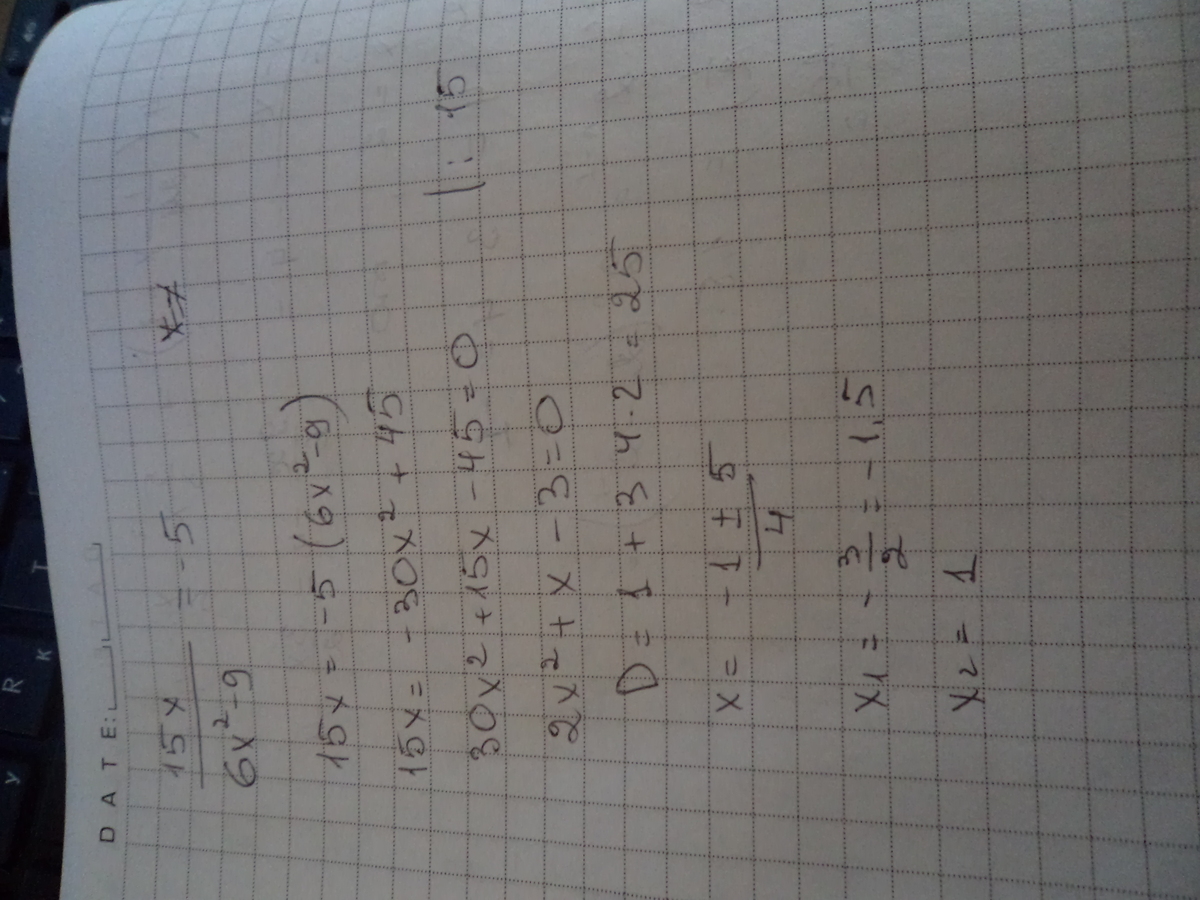 DATE:
15x / 6x²-9 = -5
15x = -5 (6x²-9)
15x = -30x² + 45
30x² + 15x - 45 = 0 |: 15
2x² + x - 3 = 0
D = 1 + 3·4·2 = 25
x = -1 ± 5 / 4
x1 = - 3/2 = -1,5
x2 = 1